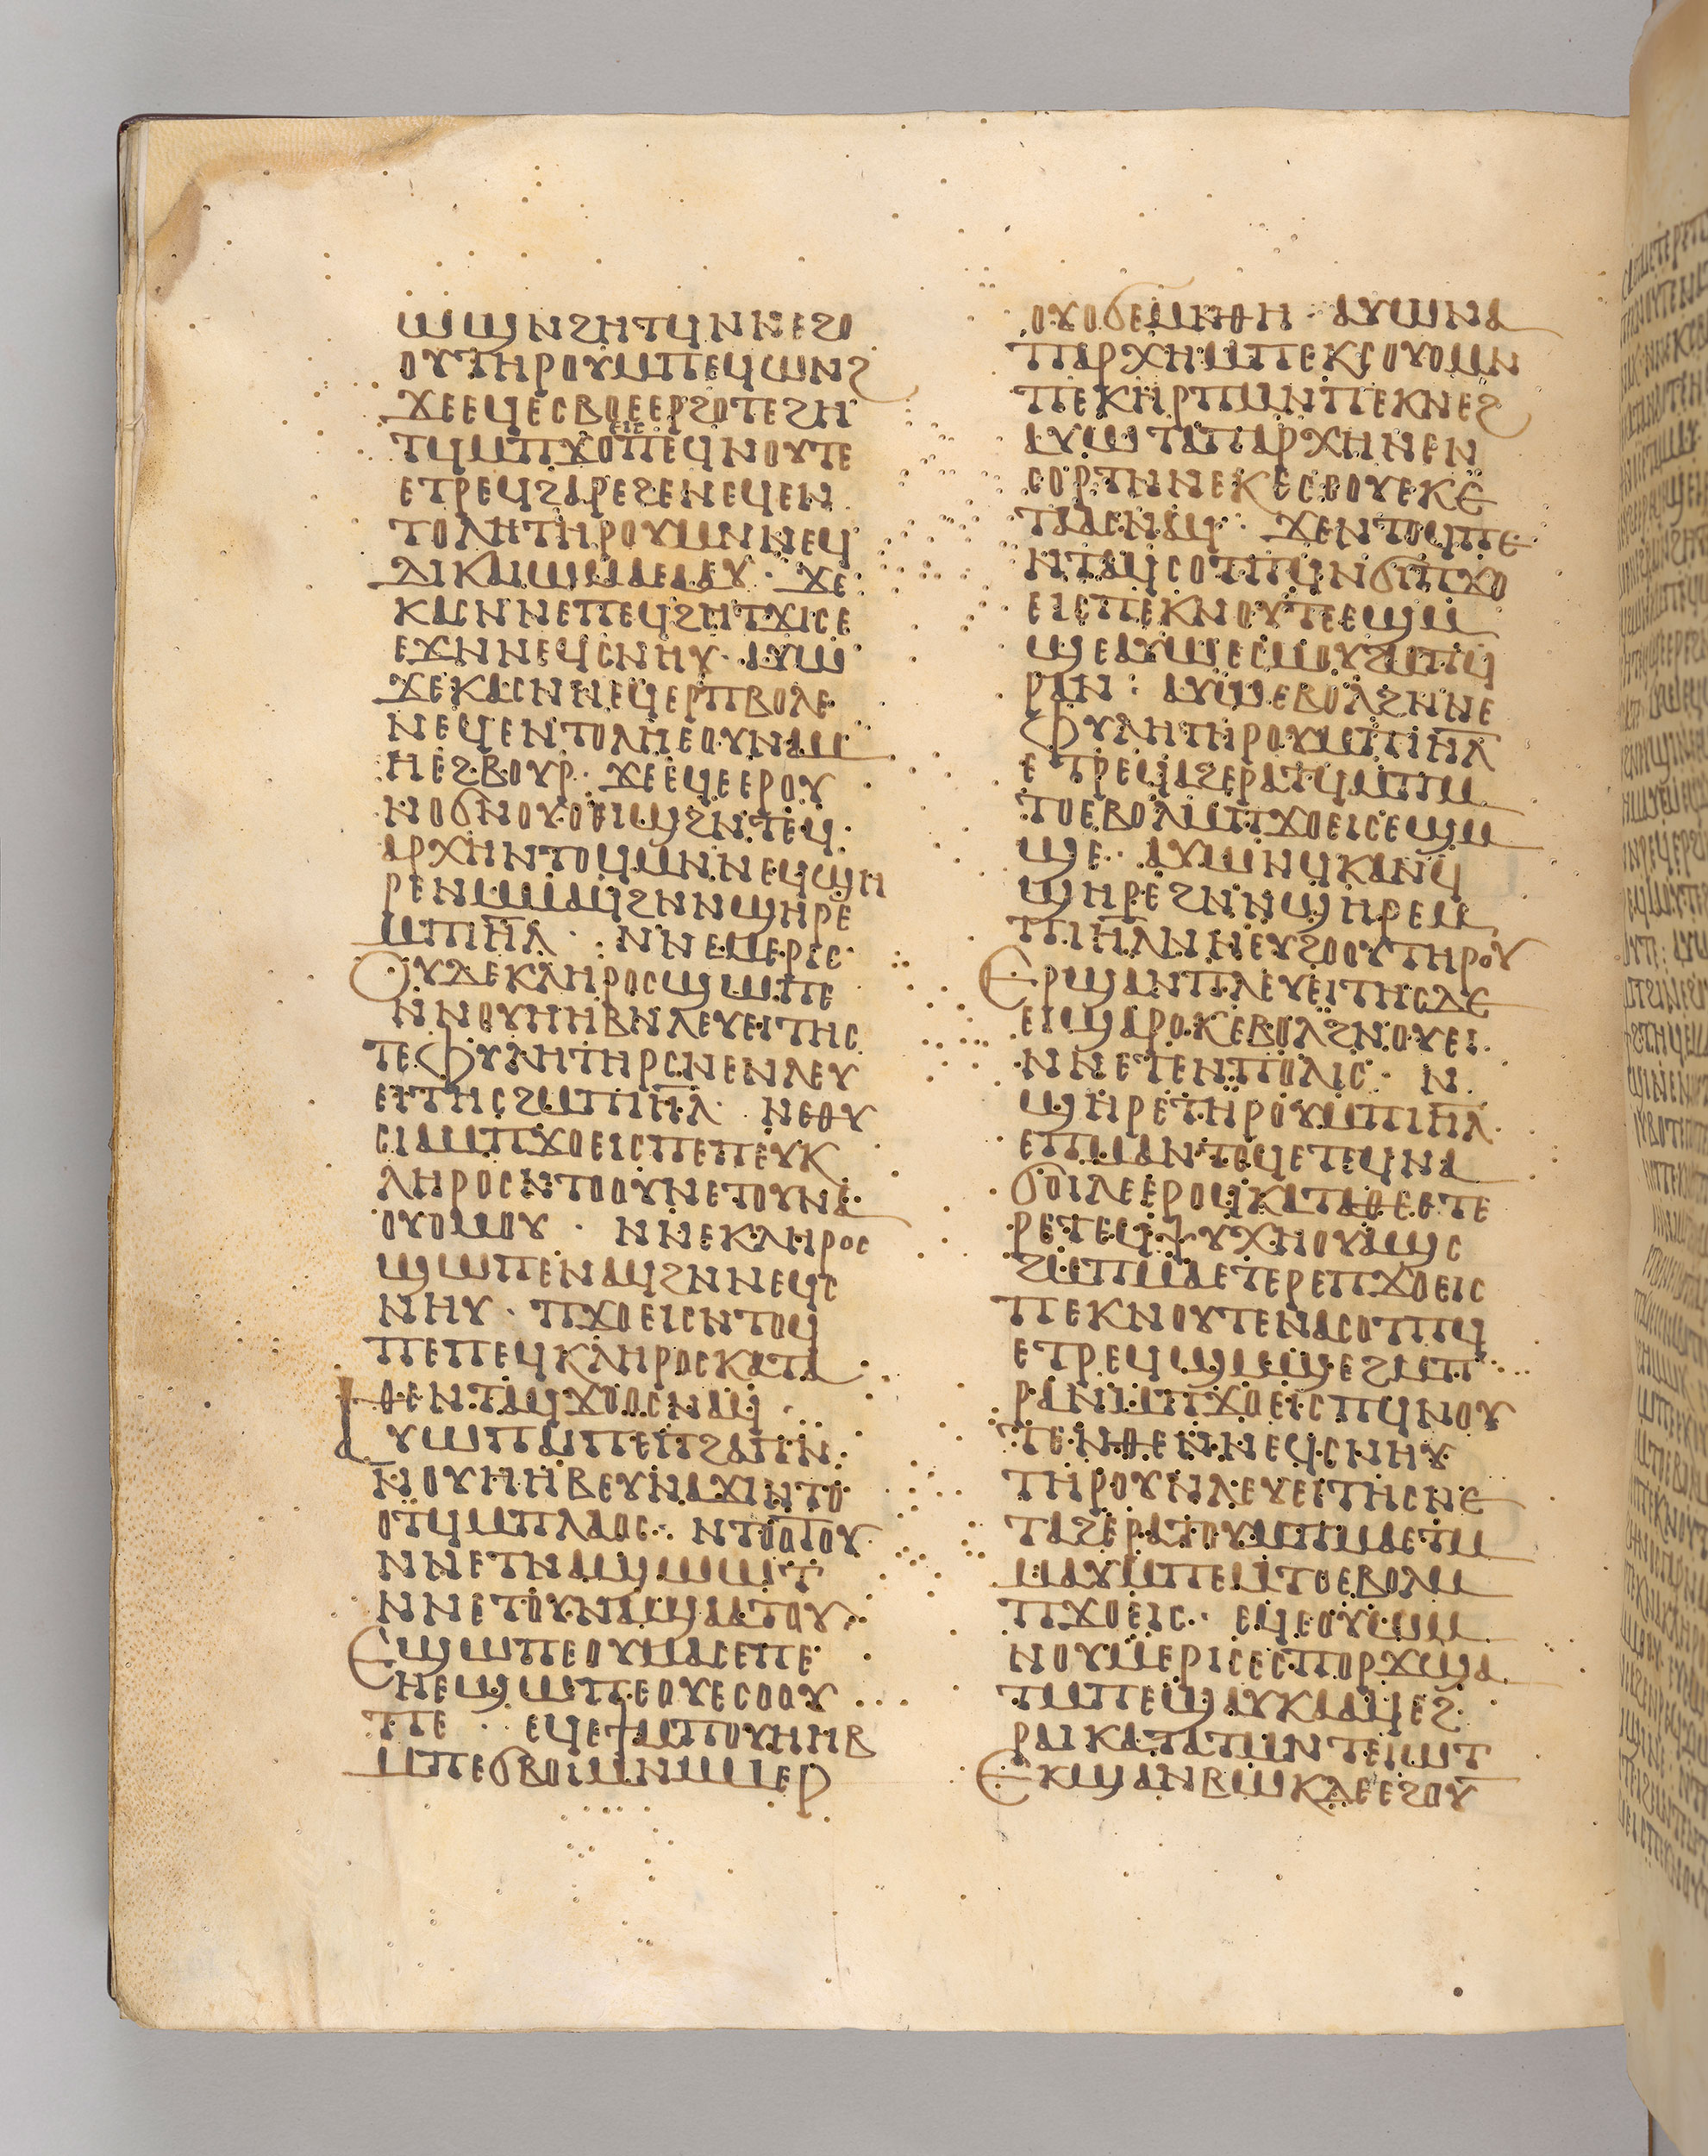 ⲱϣⲛϩⲏⲧϥⲛⲛⲉϩⲟ
ⲟⲩⲧⲏⲣⲟⲩⲙⲡⲉϥⲱⲛϩ
ϫⲉⲉϥⲉⲥⲃⲟⲉⲉⲣϩⲟⲧⲉϩⲏ
ⲧϥⲙⲡϫⲟⲉⲓⲥⲡⲉϥⲛⲟⲩⲧⲉ
ⲉⲧⲣⲉϥϩⲁⲣⲉϩⲉⲛⲉϥⲉⲛ
ⲧⲟⲗⲏⲧⲏⲣⲟⲩⲙⲛⲛⲉϥ
ⲇⲓⲕⲁⲓⲱⲙⲁⲉⲁⲁⲩ · ϫⲉ
ⲕⲁⲥⲛⲛⲉⲡⲉϥϩⲏⲧϫⲓⲥⲉ
ⲉϫⲛⲛⲉϥⲥⲛⲏⲩ · ⲁⲩⲱ
ϫⲉⲕⲁⲥⲛⲛⲉϥⲉⲣⲡⲃⲟⲗⲉ
ⲛⲉϥⲉⲛⲧⲟⲗⲏⲉⲟⲩⲛⲁⲙ
ⲏⲉϩⲃⲟⲩⲣ · ϫⲉⲉϥⲉⲉⲣⲟⲩ
ⲛⲟϭⲛⲟⲩⲟⲉⲓϣϩⲛⲧⲉϥ
ⲁⲣⲭⲏⲛⲧⲟϥⲙⲛⲛⲉϥϣⲏ
ⲣⲉⲛⲙⲙⲁϥϩⲛⲛϣⲏⲣⲉ
ⲙⲡⲓⲏⲗ · ⲛⲛⲉⲙⲉⲣⲓⲥ
ⲟⲩⲇⲉⲕⲗⲏⲣⲟⲥϣⲱⲡⲉ
ⲛⲛⲟⲩⲏⲏⲃⲛⲗⲉⲩⲉⲓⲧⲏⲥ
ⲧⲉⲫⲩⲗⲏⲧⲏⲣⲥⲛⲉⲛⲗⲉⲩ
ⲉⲓⲧⲏⲥϩⲙⲡⲓⲏⲗ · ⲛⲉⲑⲩ
ⲥⲓⲁⲙⲡϫⲟⲉⲓⲥⲡⲉⲡⲉⲩⲕ
ⲗⲏⲣⲟⲥⲛⲧⲟⲟⲩⲛⲉⲧⲟⲩⲛⲁ
ⲟⲩⲟⲙⲟⲩ · ⲛⲛⲉⲕⲗⲏⲣⲟⲥ
ϣⲱⲡⲉⲛⲁϥϩⲛⲛⲉϥⲥ
ⲛⲏⲩ · ⲡϫⲟⲉⲓⲥⲛⲧⲟϥ
ⲡⲉⲡⲉϥⲕⲗⲏⲣⲟⲥⲕⲁⲧⲁ
ⲑⲉⲛⲧⲁϥϫⲟⲟⲥⲛⲁϥ
ⲁⲩⲱⲡⲁⲓⲡⲉⲡϩⲁⲡⲛ
ⲛⲟⲩⲏⲏⲃⲉⲩⲛⲁϫⲓⲛⲧⲟ
ⲟⲧϥⲙⲡⲗⲁⲟⲥ · ⲛⲧⲟⲟⲧⲟⲩ
ⲛⲛⲉⲧⲛⲁϣⲱⲱⲧ
ⲛⲛⲉⲧⲟⲩⲛⲁϣⲁⲁⲧⲟⲩ
ⲉϣⲱⲡⲉⲟⲩⲙⲁⲥⲉⲡⲉ
ⲏⲉϣⲱⲡⲉⲟⲩⲉⲥⲟⲟⲩ
ⲡⲉ · ⲉϥⲉϯⲙⲡⲟⲩⲏⲏⲃ
ⲙⲡⲉϭⲃⲟⲓⲙⲛⲙⲙⲉⲣ
ⲟⲩⲟϭⲉⲙⲛⲑⲏ · ⲁⲩⲱⲛⲁ
ⲡⲁⲣⲭⲏⲙⲡⲉⲕⲥⲟⲩⲟⲙⲛ
ⲡⲉⲕⲏⲣⲡⲙⲛⲡⲉⲕⲛⲉϩ
ⲁⲩⲱⲧⲁⲡⲁⲣⲭⲏⲛⲉⲛ
ⲥⲟⲣⲧⲛⲛⲉⲕⲉⲥⲟⲟⲩⲉⲕⲉ
ⲧⲁⲁⲥⲛⲁϥ · ϫⲉⲛⲧⲟϥⲡⲉ
ⲛⲧⲁϥⲥⲟⲧⲡϥⲛϭⲓⲡϫⲟ
ⲉⲓⲥⲡⲉⲕⲛⲟⲩⲧⲉⲉϣⲙ
ϣⲉⲁⲩⲱⲉⲥⲙⲟⲩϩⲙⲡϥ
ⲣⲁⲛ : ⲁⲩⲱⲉⲃⲟⲗϩⲛⲛⲉ
ⲫⲩⲗⲏⲧⲏⲣⲟⲩⲙⲡⲓⲏⲗ
ⲉⲧⲣⲉϥⲁϩⲉⲣⲁⲧϥⲙⲡⲙ
ⲧⲟⲉⲃⲟⲗⲙⲡϫⲟⲉⲓⲥⲉϣⲙ
ϣⲉ · ⲁⲩⲱⲛϥⲕⲁⲛϥ
ϣⲏⲣⲉϩⲛⲛϣⲏⲣⲉⲙ
ⲡⲓⲏⲗⲛⲛⲉⲩϩⲟⲟⲩⲧⲏⲣⲟⲩ
ⲉⲣϣⲁⲛⲡⲗⲉⲩⲉⲓⲧⲏⲥⲇⲉ
ⲉⲓϣⲁⲣⲟⲕⲉⲃⲟⲗϩⲛⲟⲩⲉⲓ
ⲛⲛⲉⲧⲉⲛⲡⲟⲗⲓⲥ · ⲛ
ϣⲏⲣⲉⲧⲏⲣⲟⲩⲙⲡⲓⲏⲗ
ⲉⲡⲙⲁⲛⲧⲟϥⲉⲧⲉϥⲛⲁ
ϭⲟⲓⲗⲉⲉⲣⲟϥⲕⲁⲧⲁⲑⲉⲉⲧⲉ
ⲣⲉⲧⲉϥⲯⲩⲭⲏⲟⲩⲁϣⲥ
ϩⲙⲡⲙⲁⲉⲧⲉⲣⲉⲡϫⲟⲉⲓⲥ
ⲡⲉⲕⲛⲟⲩⲧⲉⲛⲁⲥⲟⲧⲡϥ
ⲉⲧⲣⲉϥϣⲙϣⲉϩⲙⲡ
ⲣⲁⲛⲙⲡϫⲟⲉⲓⲥⲡϥⲛⲟⲩ
ⲧⲉⲛⲑⲉⲛⲛⲉϥⲥⲛⲏⲩ
ⲧⲏⲣⲟⲩⲛⲗⲉⲩⲉⲓⲧⲏⲥⲛⲉ
ⲧⲁϩⲉⲣⲁⲧⲟⲩⲙⲡⲙⲁⲉⲧⲙ
ⲙⲁⲩⲙⲡⲉⲙⲧⲟⲉⲃⲟⲗⲙ
ⲡϫⲟⲉⲓⲥ · ⲉϥⲉⲟⲩⲱⲙ
ⲛⲟⲩⲙⲉⲣⲓⲥⲉⲥⲡⲟⲣϫϣⲁ
ⲧⲙⲡⲉϣⲁⲩⲕⲁⲁϥⲉϩ
ⲣⲁⲓⲕⲁⲧⲁⲧⲙⲛⲧⲉⲓⲱⲧ
ⲉⲕϣⲁⲛⲃⲱⲕⲇⲉⲉϩⲟⲩ